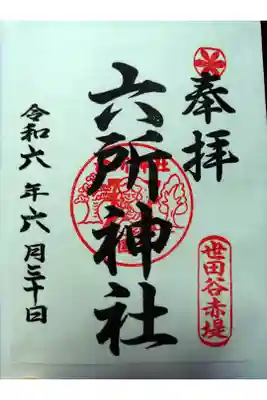 奉拝
世田谷赤堤
六所神社
令和六年六月三十日